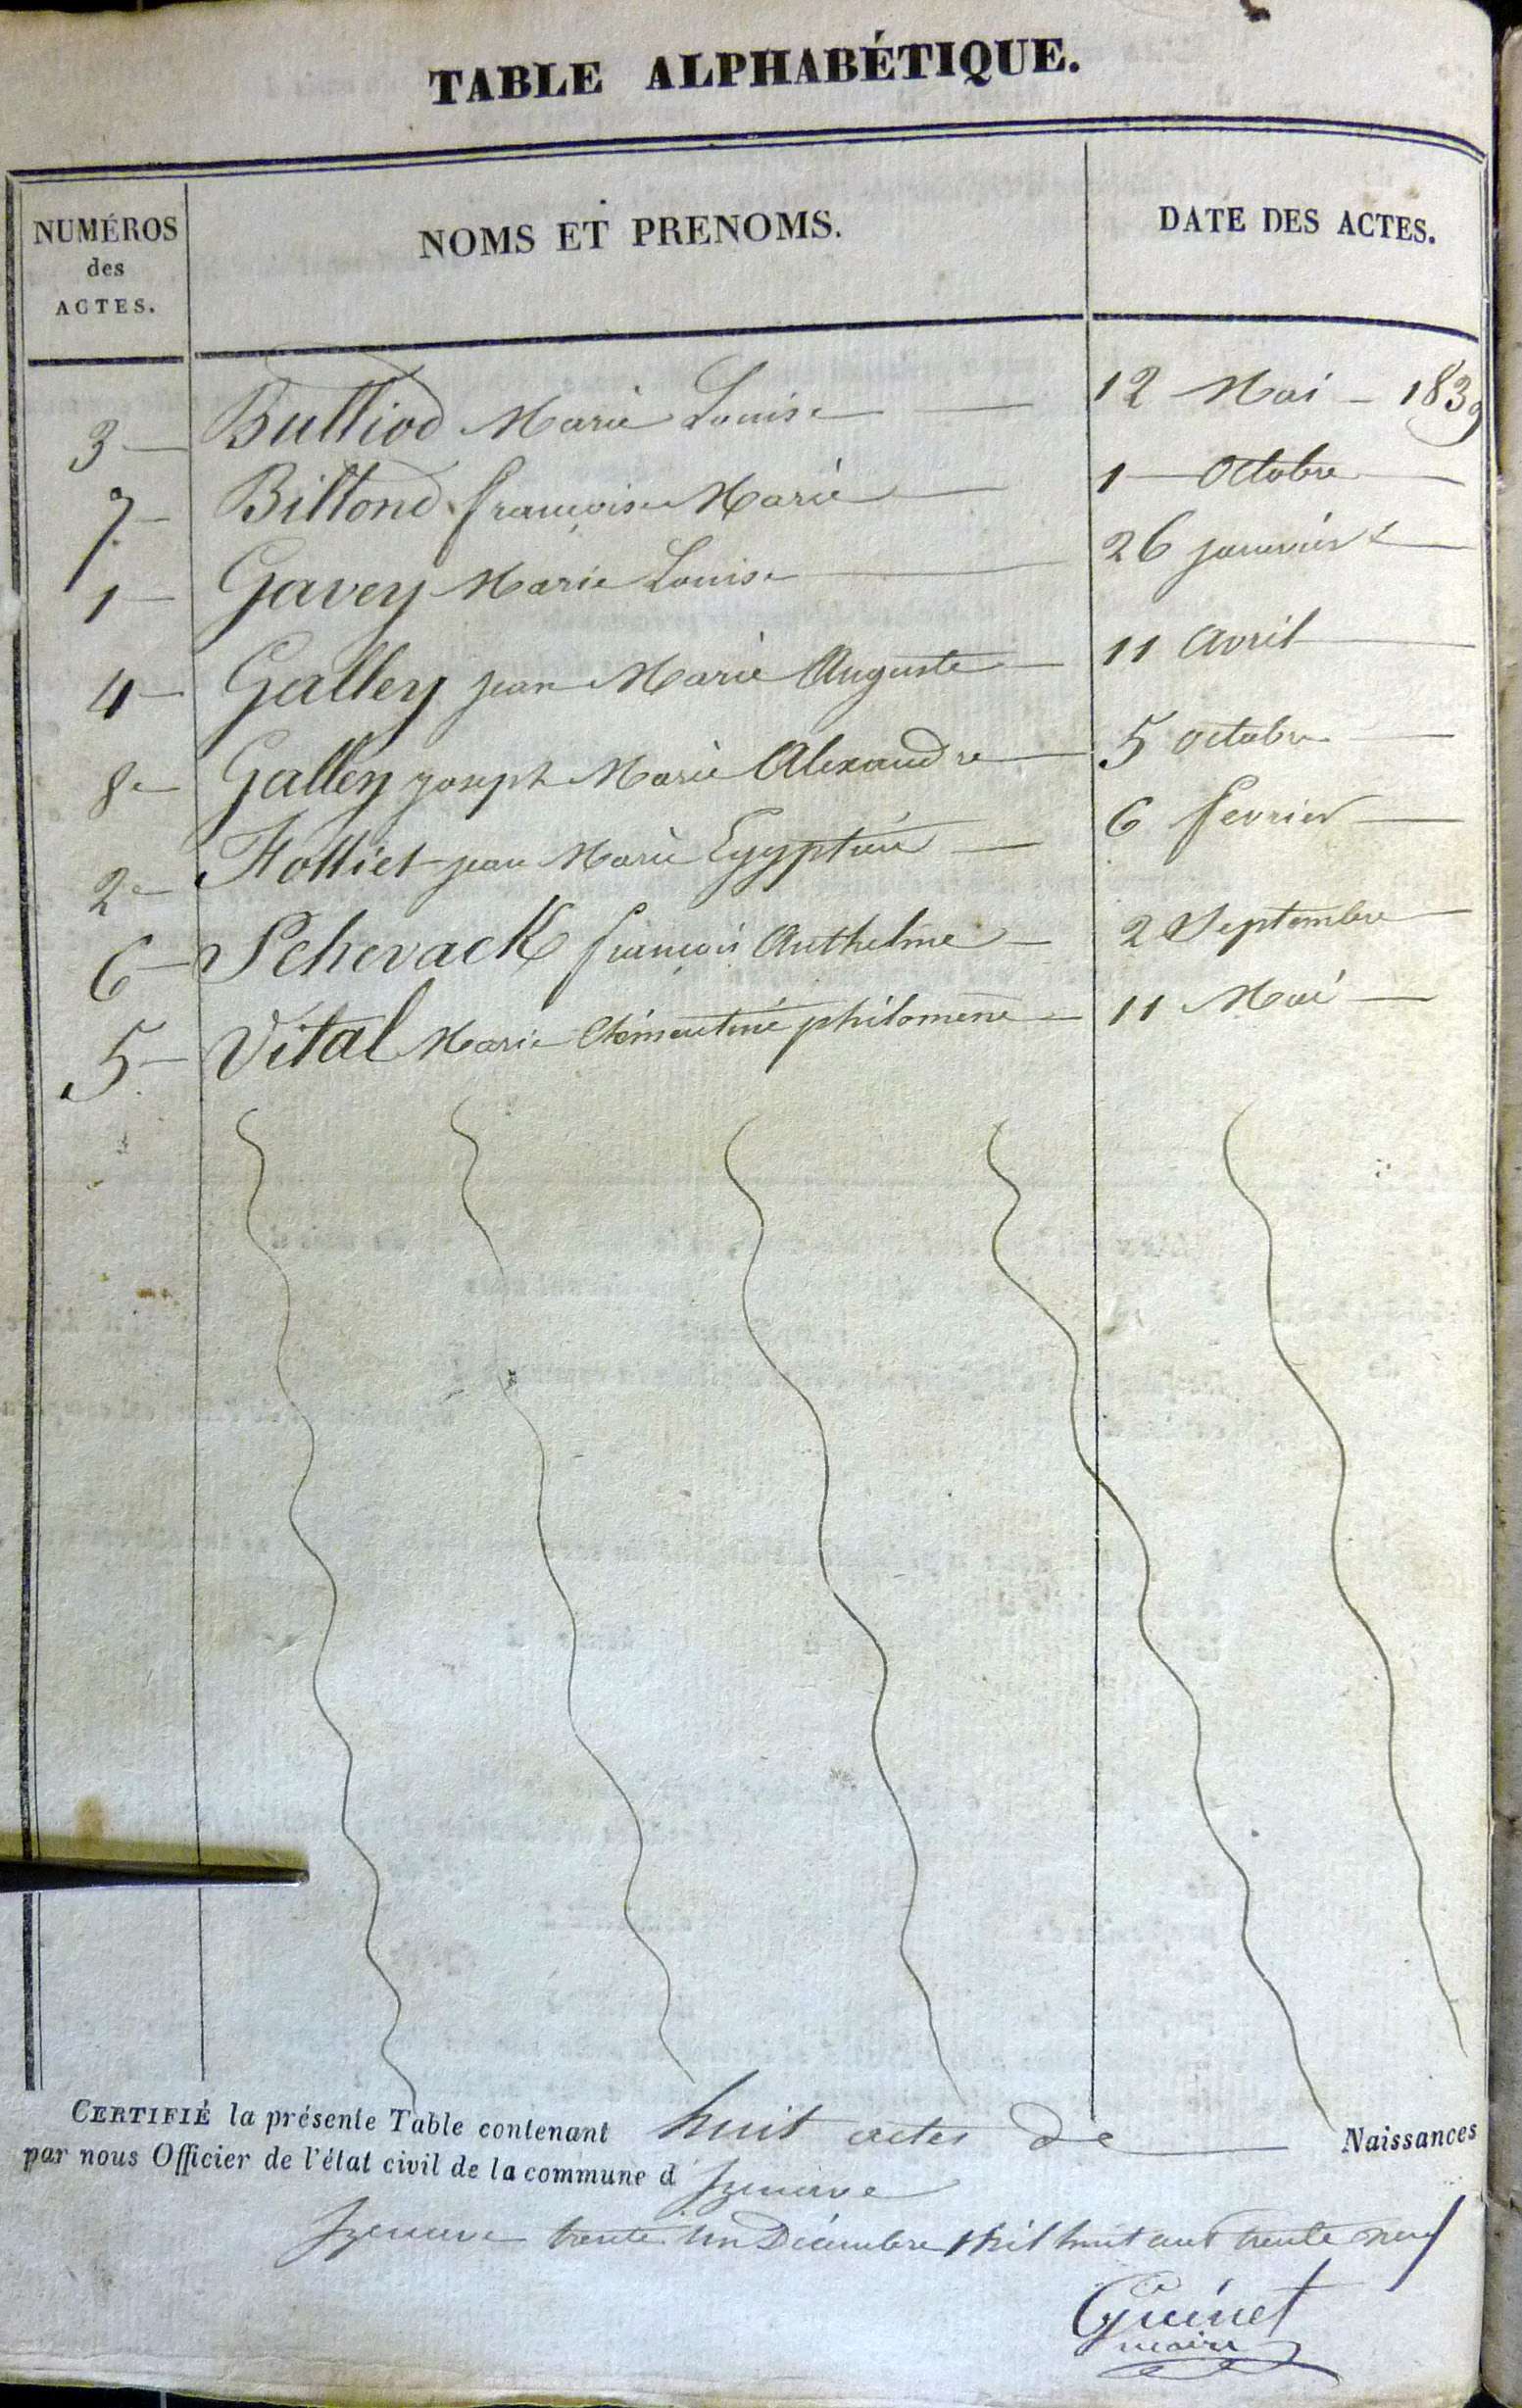 TABLE ALPHABÉTIQUE.
NUMÉROS des ACTES. NOMS ET PRENOMS. DATE DES ACTES.
3 — Bulliod Marie Louise — 12 Mai — 1839
7 — Billond françoise Marie — 1 — Octobre —
1 — Gavey Marie Louise — 26 janvier —
4 — Galley jean Marie Auguste — 11 avril —
8 — Galley joseph Marie Alexandre — 5 octobre —
2 — jean Marie — 6 fevrier —
6 — Schevack françois Anthelme — 2 Septembre —
5 — Vital Marie Clémentine philomene — 11 Mai —
CERTIFIÉ la présente Table contenant huit actes de — Naissances
par nous Officier de l'état civil de la commune d Izenave
Izenave trente un Décembre Mil huit cent trente neuf
Guinet
maire